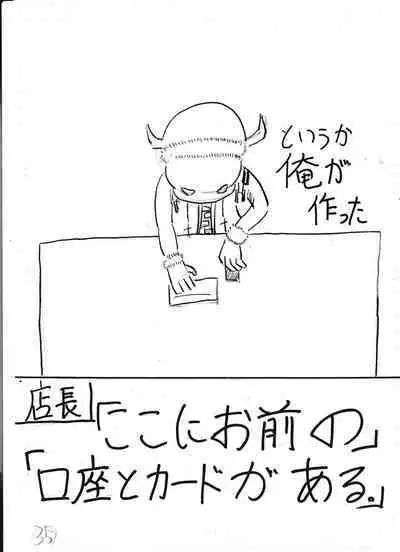 というか
俺が
作った
店長
「ここにお前の」
「口座とカードがある。」
35